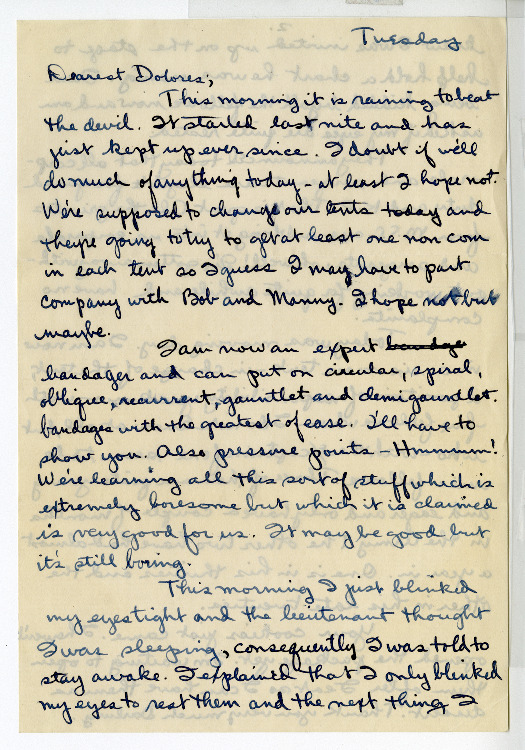 Tuesday
Dearest Dolores;
This morning it is raining to beat
the devil. It started last nite and has
just kept up ever since. I doubt if we'll
do much of anything today - at least I hope not.
We're supposed to change our tents today and
they're going to try to get at least one non com
in each tent so I guess I may have to part
company with Bob and Manny. I hope not but
maybe.
I am now an expert bandage
bandager and can put on circular, spiral,
oblique, recurrent, gauntlet and demigauntlet.
bandages with the greatest of ease. I'll have to
show you. Also pressure points - Hmmmm!
We're learning all this sort of stuff which is
extremely boresome but which it is claimed
is very good for us. It may be good but
it's still boring.
This morning I just blinked
my eyes tight and the lieutenant thought
I was sleeping, consequently I was told to
stay awake. I explained that I only blinked
my eyes to rest them and the next thing I